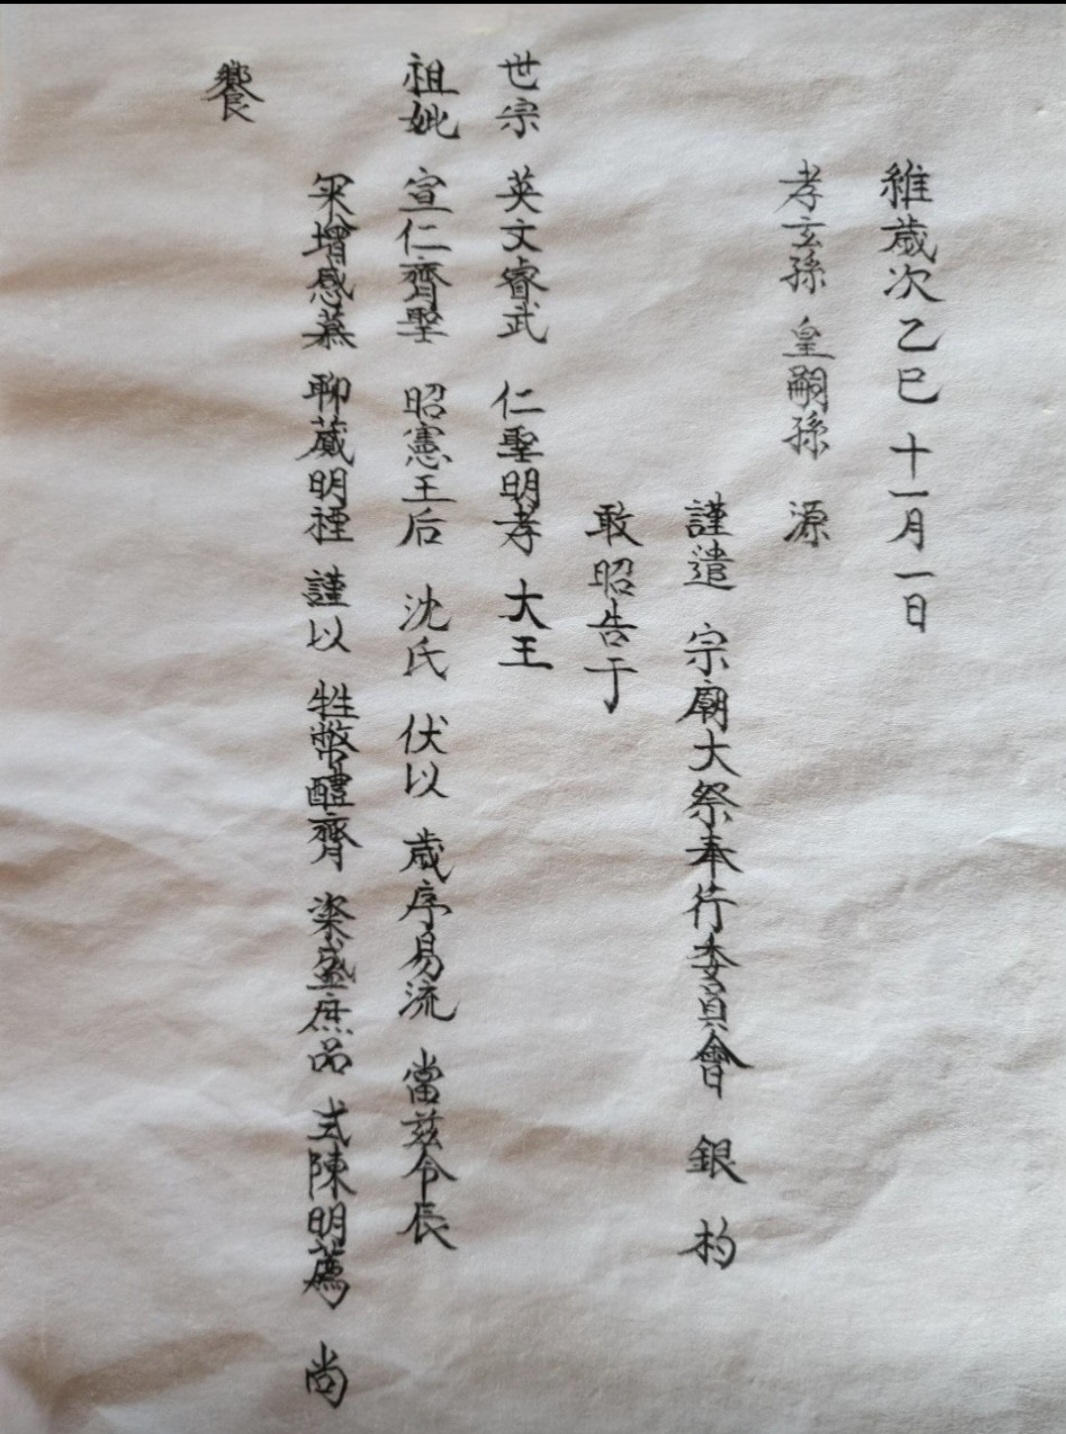 維歲次 乙巳 十一月一日
孝玄孫 皇嗣孫 源
謹遣 宗廟大祭奉行委員會 銀 杓
敢昭告于
世宗 英文睿武 仁聖明孝 大王
祖妣 宣仁齊聖 昭憲王后 沈氏 伏以 歲序易流 當茲令長
采增感慕 聊蕆明禋 謹以 牲幣醴齊 粢盛庶品 式陳明薦 尚
饗